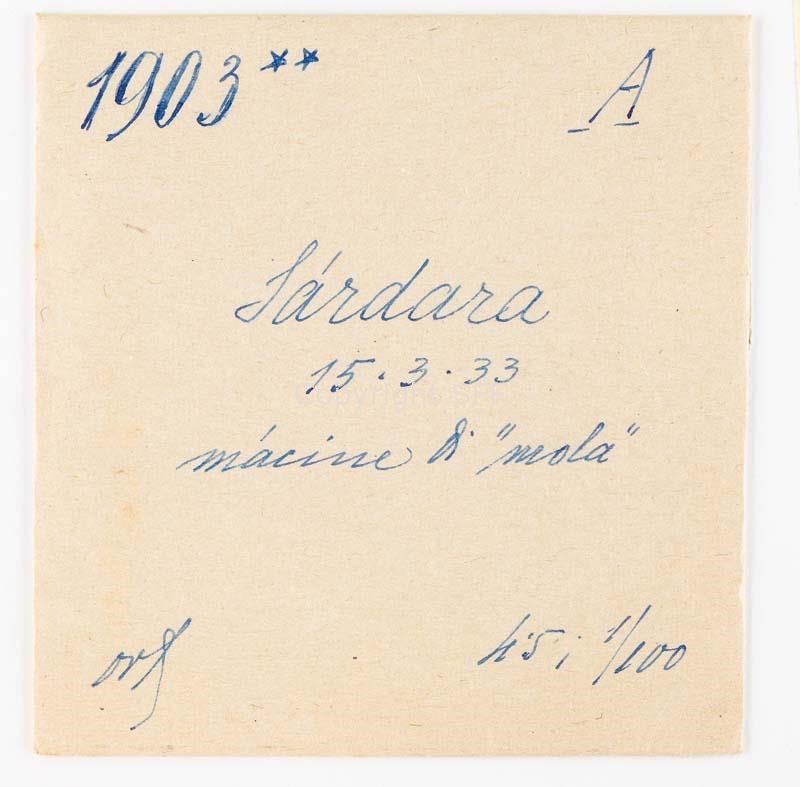 1903** A
Sárdara
15.3.33
mácine di "mola"
4.5; 1/100